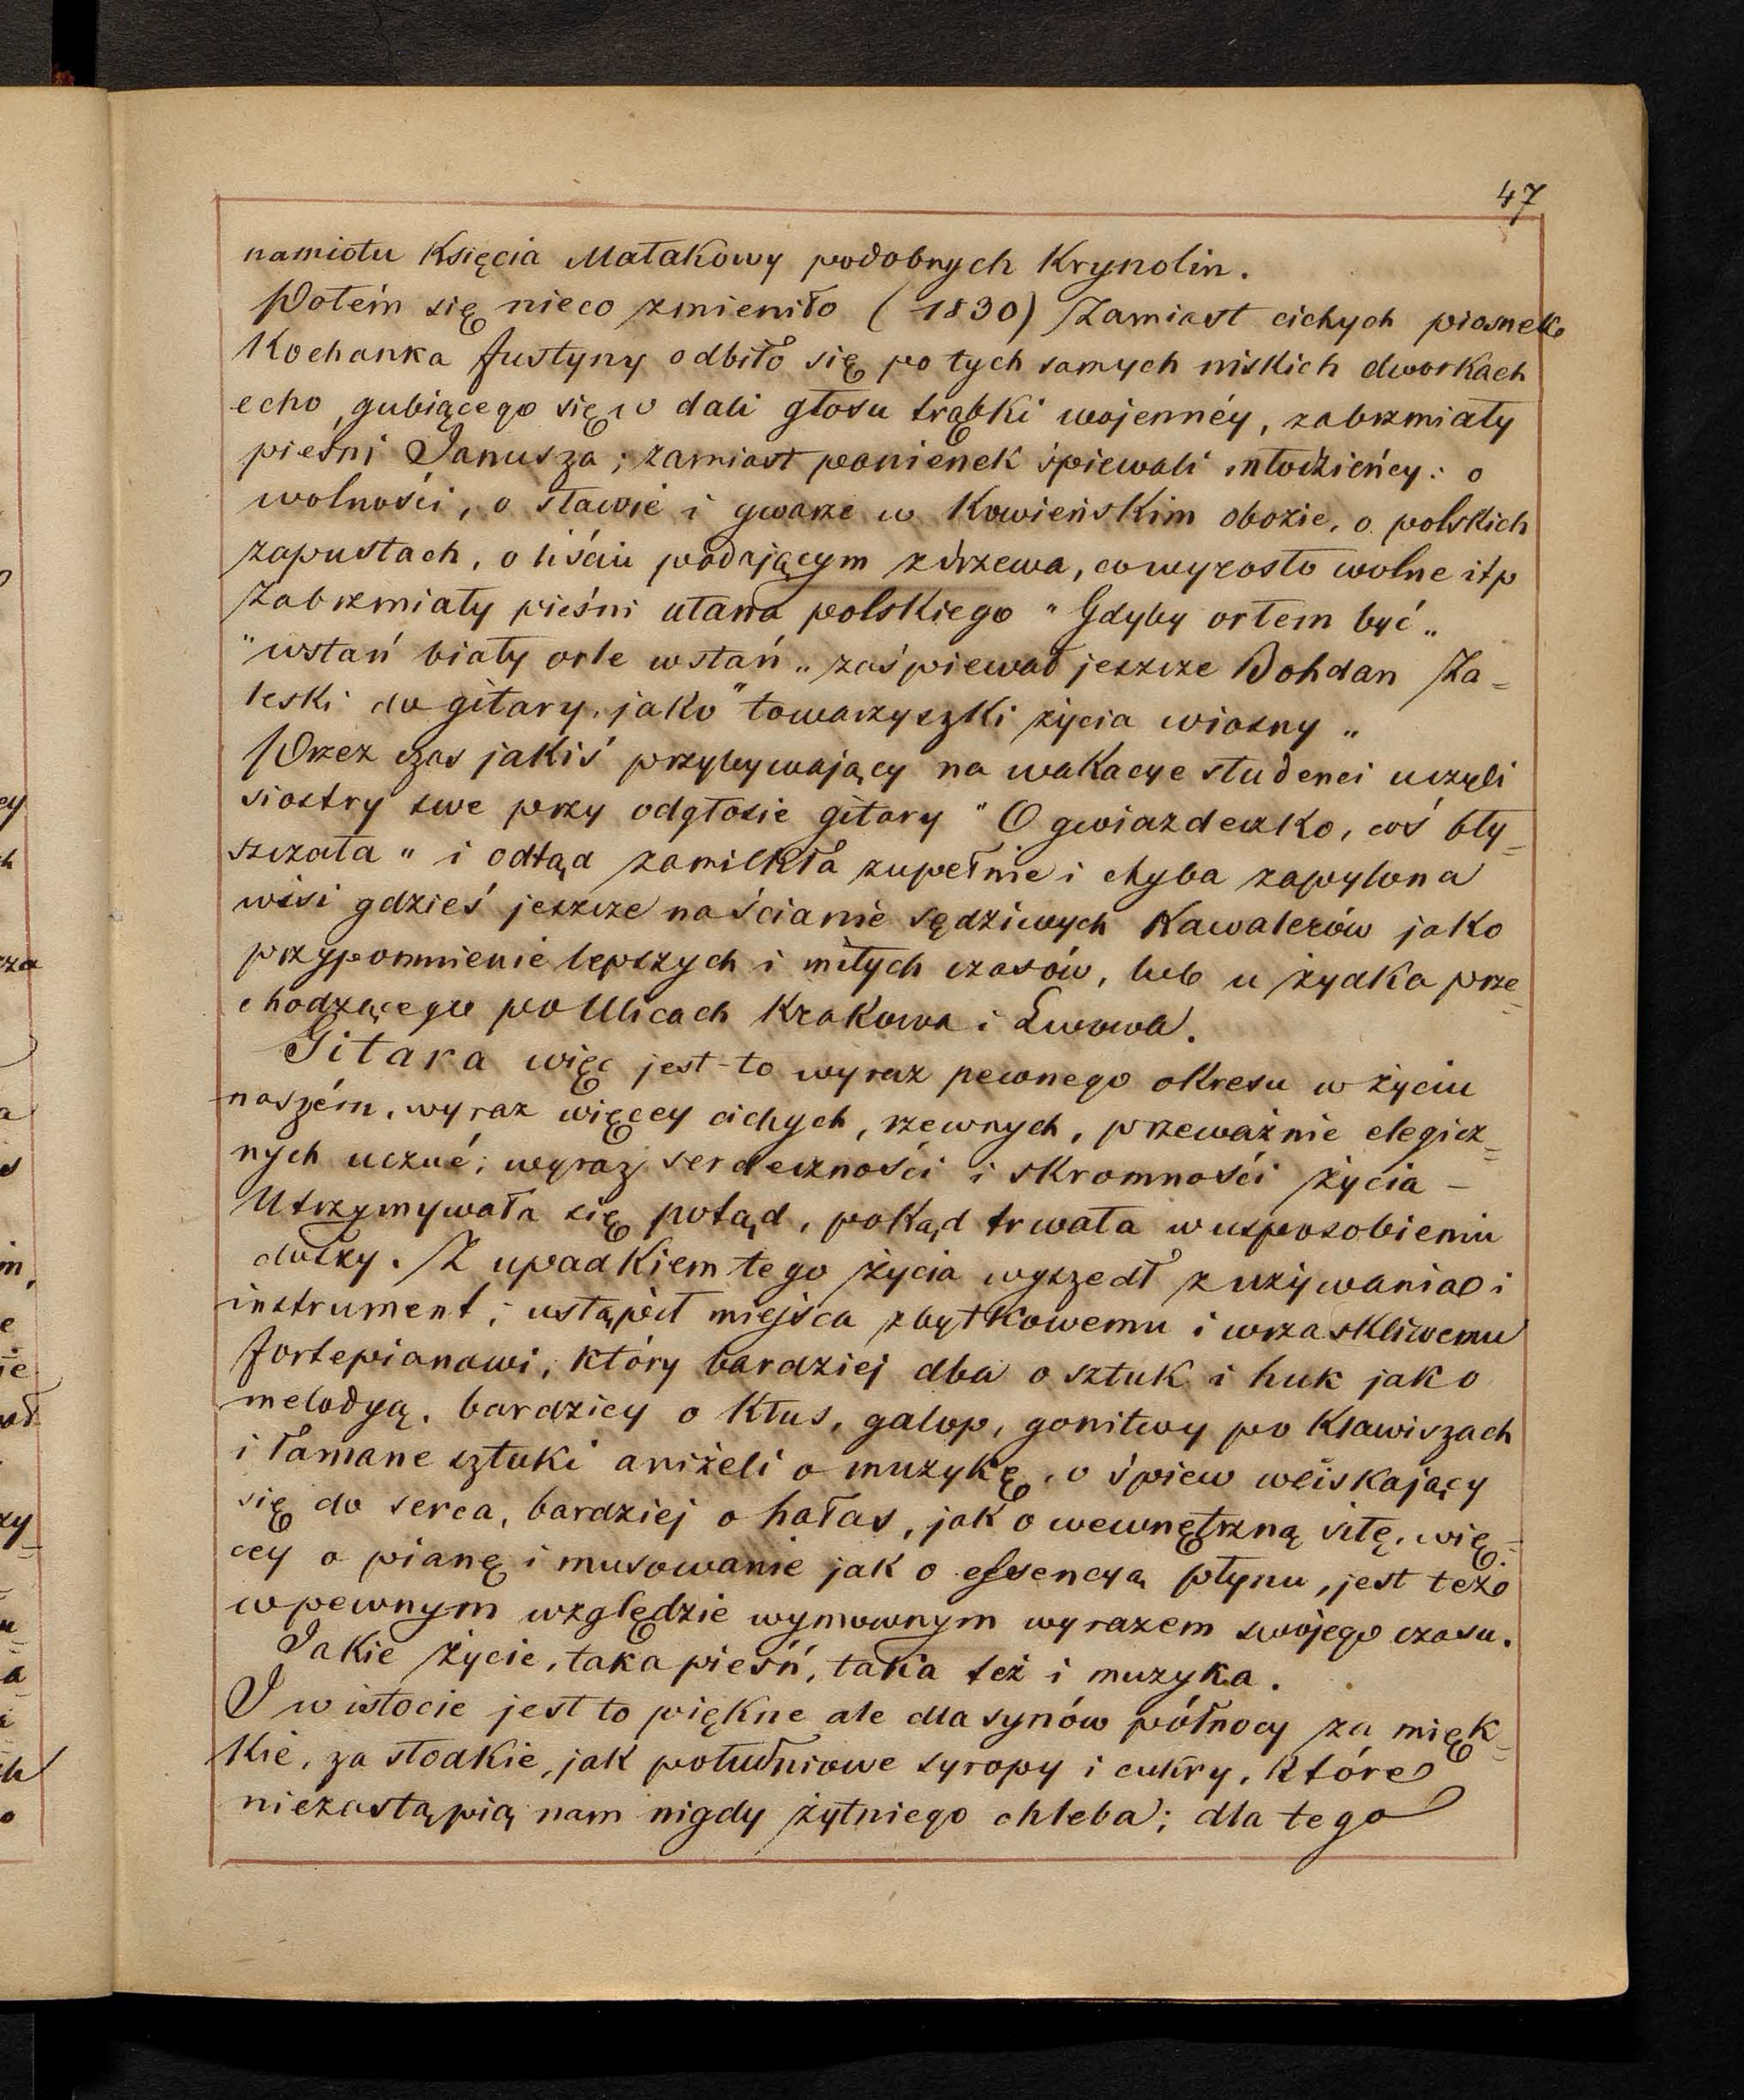 47
namiotu Księcia Małakowy podobnych Krynolin.
Potém się nieco zmieniło (1830) Zamiast cichych piosnek
Kochanka Justyny odbiło się po tych samych niskich dworkach
echo, gubiącego się w dali głosu trąbki wojennéy, zabrzmiały
pieśni Janusza; zamiast panienek śpiewali młodzieńcy: o
wolności, o sławie i gwarze w Kowieńskim obozie, o polskich
zapustach, o liściu padającym z drzewa, co wyrosło wolne itp
Zabrzmiały pieśni ułana polskiego "Gdyby orłem być„
"wstań biały orle wstań„ zaśpiewał jeszcze Bohdan Za=
leski do gitary, jako "towarzyszki życia wiosny„
Przez czas jakiś przybywający na wakacye studenci uczyli
siostry swe przy odgłosie gitary "O gwiazdeczko, coś bły=
szczała" i odtąd zamilkła zupełnie i chyba zapylona
wisi gdzieś jeszcze na ścianie sędziwych Kawalerów jako
przypomnienie lepszych i miłych czasów, lub u żydka prze=
chodzącego po Ulicach Krakowa i Lwowa.
Gitara więc jest-to wyraz pewnego okresu w życiu
naszém, wyraz więcey cichych, rzewnych, przeważnie elegicz=
nych uczuć; wyraz serdeczności i skromności życia –
Utrzymywała się potąd, pokąd trwała w usposobieniu
duszy. Z upadkiem tego życia wyszedł z używania i
instrument; ustąpił miejsca zbytkowemu i wrzaskliwemu
fortepianowi, który bardziej dba o sztuk i huk jako
melodyą, bardzicy o kłus, galop, gonitwy po klawiszach
i łamane sztuki aniżeli o muzykę, o śpiew wciskający
się do serca, bardziej o hałas, jak o wewnętrzną siłę, wię=
cey o pianę i musowanie jak o essencyą płynu, jest też o
w pewnym względzie wymownym wyrazem swojego czasu.
Jakie życie, taka pieśń, taka też i muzyka.
I w istocie jest to piękne ale dla synów północy za mięk=
kie, za słodkie, jak południowe syropy i cukry, które
niezastąpią nam nigdy żytniego chleba; dla tego